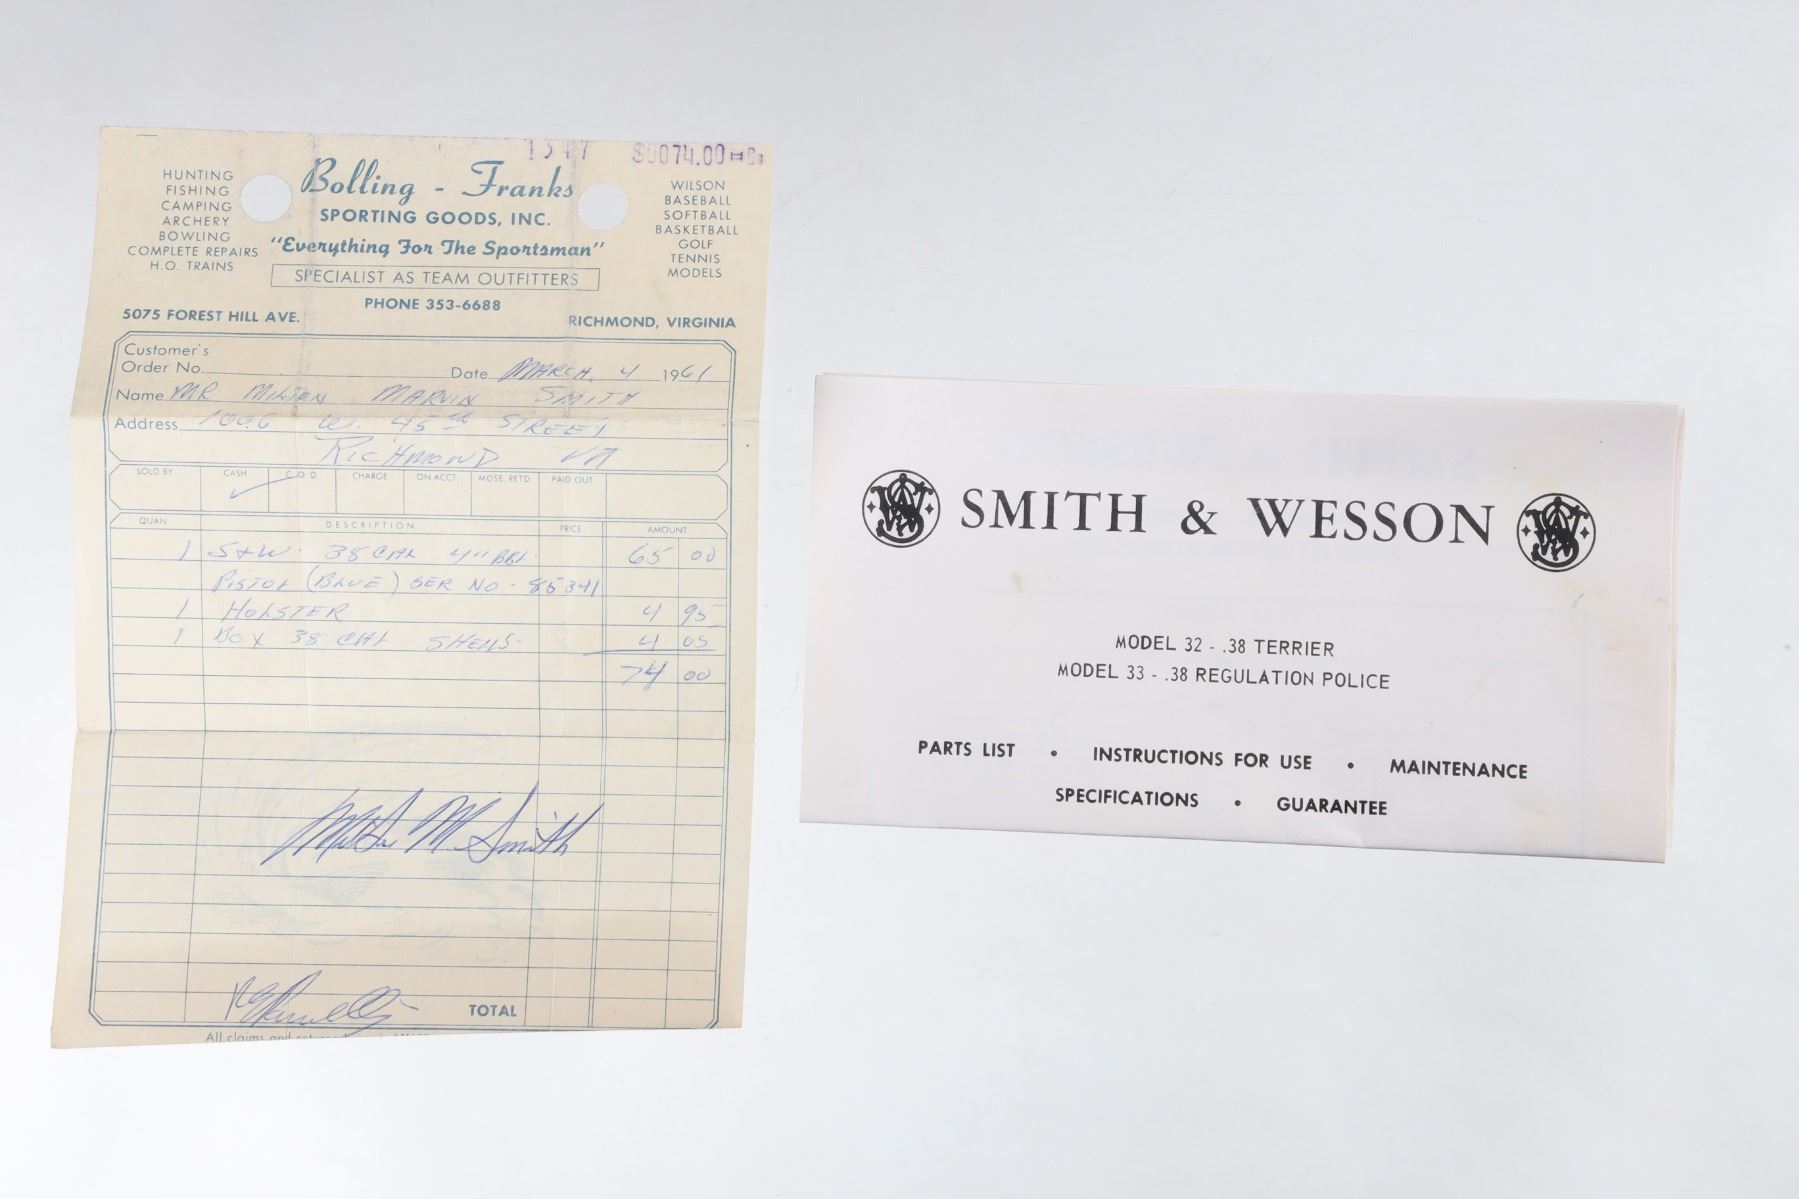 $0074.00
HUNTING
FISHING
CAMPING
ARCHERY
BOWLING
COMPLETE REPAIRS
H.O. TRAINS
Bolling - Franks
SPORTING GOODS, INC.
"Everything For The Sportsman"
SPECIALIST AS TEAM OUTFITTERS
PHONE 353-6688
WILSON
BASEBALL
SOFTBALL
BASKETBALL
GOLF
TENNIS
MODELS
5075 FOREST HILL AVE.
RICHMOND, VIRGINIA
Customer's
Order No.
Date MARCH 4 1961
Name MR MILTON MARVIN SMITH
Address 1006 W. 45th STREET
RICHMOND VA
SOLD BY CASH C.O.D. CHARGE ON ACCT MDSE. RETD PAID OUT
QUAN DESCRIPTION PRICE AMOUNT
1 S+W 38 CAL 4" BBL 65 00
PISTOL (BLUE) SER NO - 85341
1 HOLSTER 4 95
1 BOX 38 CAL SHELLS 4 05
74 00
M Smith
TOTAL
All claims and
SMITH & WESSON
MODEL 32 - .38 TERRIER
MODEL 33 - .38 REGULATION POLICE
PARTS LIST • INSTRUCTIONS FOR USE • MAINTENANCE
SPECIFICATIONS • GUARANTEE